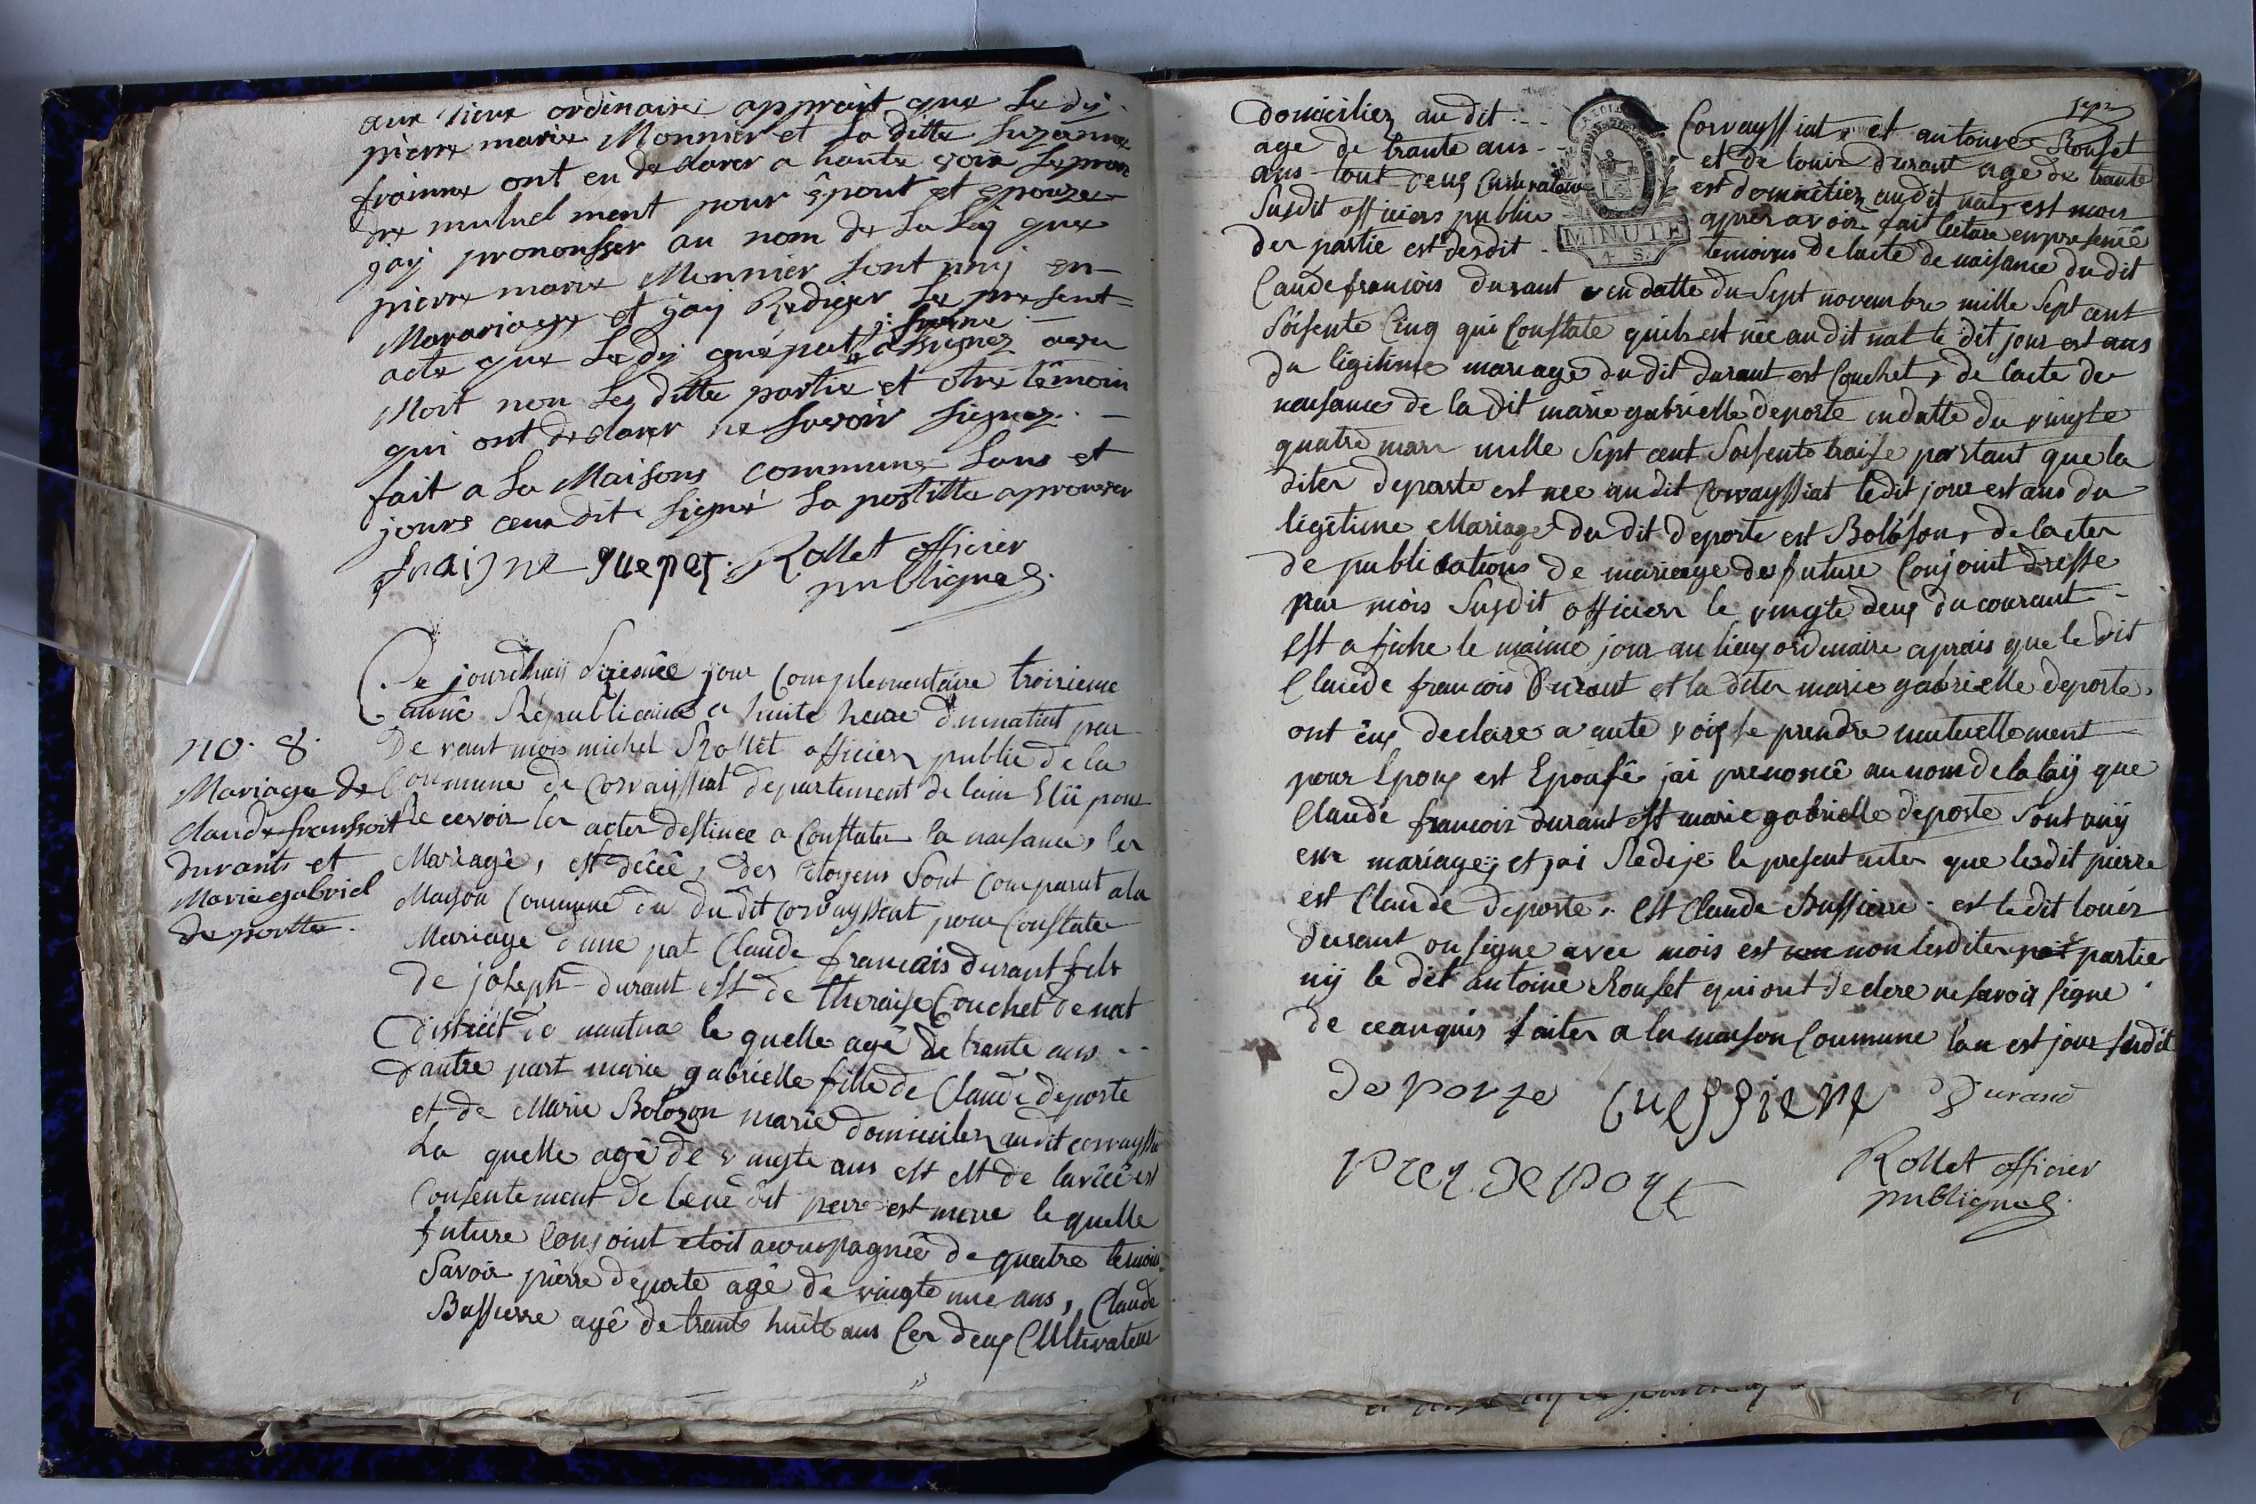 aux lieux ordinaire apprait que le dy
pierre marie Monnier et la ditte Suzanne
frainne ont eu de clarer a hautte voix se pran
dre mutuel ment pour êpout et epouze
jay pronousser au nom de la Loy que
pierre marie Monnier sont unij en
Marariage et jay Redijer le present
acte que le dy guepat j: fraine assignez avec
Moit non les ditte partie et otre têmoin
qui ont de clarer ne savoir signez.
fait a la Maisons commune Lans et
jours ceux dit signé la postille aprouver
fraine guepez. Rollet officier
publique
no. 8.
Mariage de
Claude fransoit
durants et
Marie gabriel
de portte.
Ce jourdhuij Sixiesmêe jour Complementaire troisieme
année Républicaine a huite heure du matint par
De vant mois michel Rollêt officier public de la
Commune de Corvayssiat departement de lain Elü pour
Re cevoir les actes destinee a Constater la naisance, les
Mariage, est décêe, des citoyens Sont Comparut a la
Maison Commune du du dit corvayssiat pour Constater
Mariage dune pat Claude francais durant fils
de joseph durant est de theraise Couchet de nat
district de nantua le quelle agê de trante ans
dautre part marie gabrielle fille de Claude deporte
et de Marie Bolozon marie domicilier audit corvayssia
La quelle agê de vingte ans est est de lavîcê est
Consentement de leur dit pere est mere le quelle
future Conjoint etoit acompagnée de quatre temoin
Savoir piêrre deporte agê de vingte une ans, Claude
Bussierre agê de trante huite ans Ces deux Cultivateur
sept
domicilier au dit Corvayssiat, et antoine Rouset
age de trante ans et de louis durant age de trante
ans tout deux Cultivateur est domicilier audit nat, est mois
Susdit officiers public apres avoir fait lecture en presence
des partie est desdit temoins de lacte de naisance du dit
MINUTE
4 S.
Caude francois durant en datte du Sept novembre mille Sept cent
Soisente Cinq qui Constate quils est née au dit nat le dit jour est ans
du légitime mariage du dit durant est Couchet, de lacte de
naisance de la dit marie gabrielle deporte en datte du vingte
quatre mars mille Sept cent Soisente traise portant que la
dites deporte est nee au dit Corvayssiat ledit jour est ans du
légitime Mariage du dit deporte est Bolôson, de lactes
de publications de mariage des future Conjoint dresse
par mois Susdit officier le vingte deux du courant
est afiche le maime jour au lieux ordinaire aprais que le dit
Claude francois Durant et la dites marie gabrielle deporte,
ont êux declare a aute voix se prendre mutuellement
pour Epoux est Epousê jai prenoncê au nom de la laij que
Claude francois durant est marie gabrielle deporte Sont unij
en mariage, et jai Redije le present actes que lesdit pierre
est Claude deporte, est Claude Bussiere est ledit louis
Durant on signe avec mois est non lesdites partie
nij le dit antoine Rouset qui ont de clere ne savoir signe
de ceanquis faites a la maison Commune lan est jour susdit
deporte Bussiere Durand
Rollet officier
publique